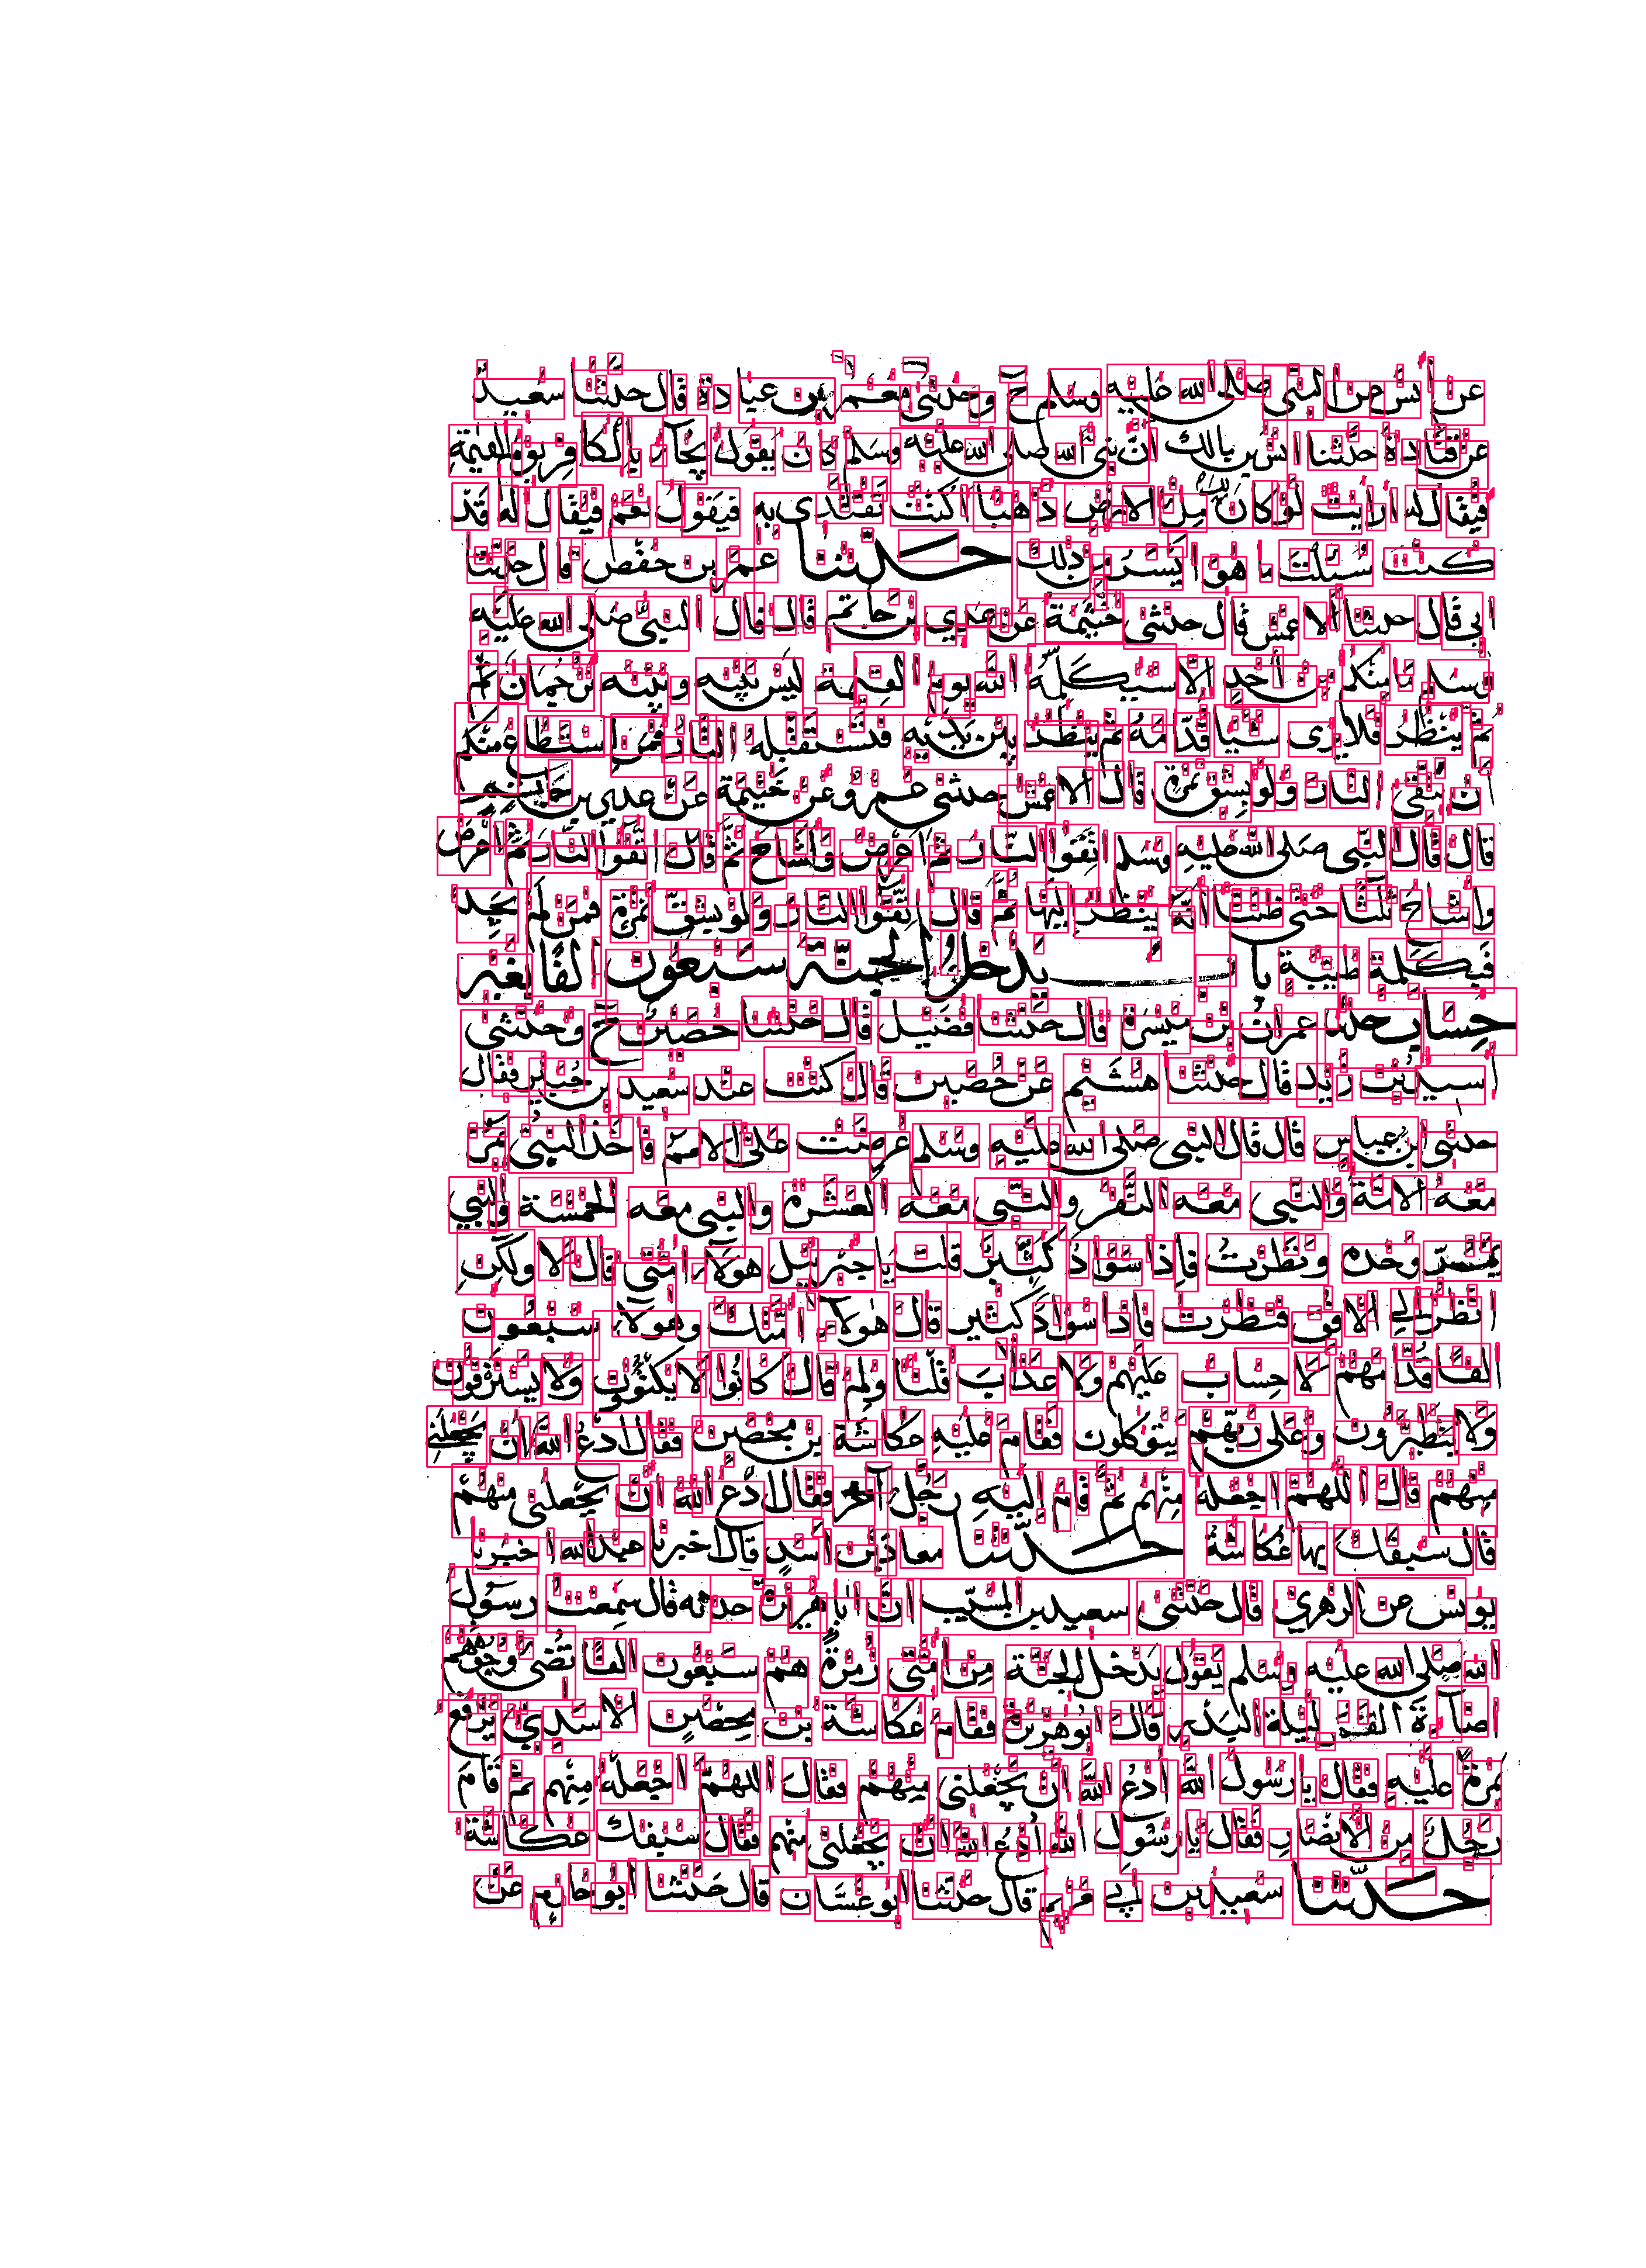 عن انس عن النبي صلى الله عليه وسلم ح وحدثني معمر بن عبادة قال حدثنا سعيد
عن قتادة حدثنا انس بن مالك ان نبي الله صلى الله عليه وسلم كان يقول يجآء بالكافر يوم القيمة
فيقال له ارايت لو كان لك من الارض ذهبا اكنت تفتدي به فيقول نعم فيقال له قد
كنت سئلت ما هو ايسر من ذلك حدثنا عمر بن حفص قال حدثنا
ابي قال حدثنا الاعمش قال حدثني خيثمة عن عدي بن حاتم قال قال النبي صلى الله عليه
وسلم ما منكم من احد الا سيكلمه الله يوم القيمة ليس بينه وبينه ترجمان ثم
ثم ينظر فلا يرى شيا قدامه ثم ينظر بين يديه فتستقبله النار فمن استطاع منكم
ان يتقي النار ولو بشق تمرة قال الاعمش حدثني عمرو عن خيثمة عن عدي بن حاتم
قال قال النبي صلى الله عليه وسلم اتقوا النار ثم اعرض واشاح ثم قال اتقوا النار ثم اعرض
واشاح ثلثا حتى ظننا انه ينظر اليها ثم قال اتقوا النار ولو بشق تمرة فمن لم يجد
فبكلمة طيبة باب يدخل الجنة سبعون الفا بغير
حساب حدثنا عمران بن ميسرة قال حدثنا فضيل قال حدثنا حصين ح وحدثني
اسيد بن زيد قال حدثنا هشيم عن حصين قال كنت عند سعيد بن جبير فقال
حدثني ابن عباس قال قال النبي صلى الله عليه وسلم عرضت علي الامم فاخذ النبي يمر
معه الامة والنبي معه النفر والنبي معه العشرة والنبي معه الخمسة والنبي
يمر وحده ونظرت فاذا سواد كثير قلت يا جبريل هولاء امتي قال لا ولكن
انظر الى الافق فنظرت فاذا سواد كثير قال هولاء امتك وهولاء سبعون
الفا قدامهم لا حساب عليهم ولا عذاب قلت ولم قال كانوا لا يكتوون ولا يسترقون
ولا يتطيرون وعلى ربهم يتوكلون فقام عليه عكاشة بن محصن فقال ادع الله ان يجعلني
منهم قال اللهم اجعله منهم ثم قام اليه رجل آخر فقال ادع الله ان يجعلني منهم
قال سبقك بها عكاشة حدثنا معاذ بن اسد قال اخبرنا عبد الله اخبرنا
يونس عن الزهري قال حدثني سعيد بن المسيب ان ابا هريرة حدثه قال سمعت رسول
الله صلى الله عليه وسلم يقول يدخل الجنة من امتي زمرة هم سبعون الفا تضي وجوههم
اضآءة القمر ليلة البدر قال ابو هريرة فقام عكاشة بن محصن الاسدي يرفع
نمرة عليه فقال يا رسول الله ادع الله ان يجعلني منهم فقال اللهم اجعله منهم ثم قام
رجل من الانصار فقال يا رسول الله ادع الله ان يجعلني منهم فقال سبقك عكاشة
حدثنا سعيد بن ابي مريم قال حدثنا ابو غسان قال حدثنا ابو حازم عن